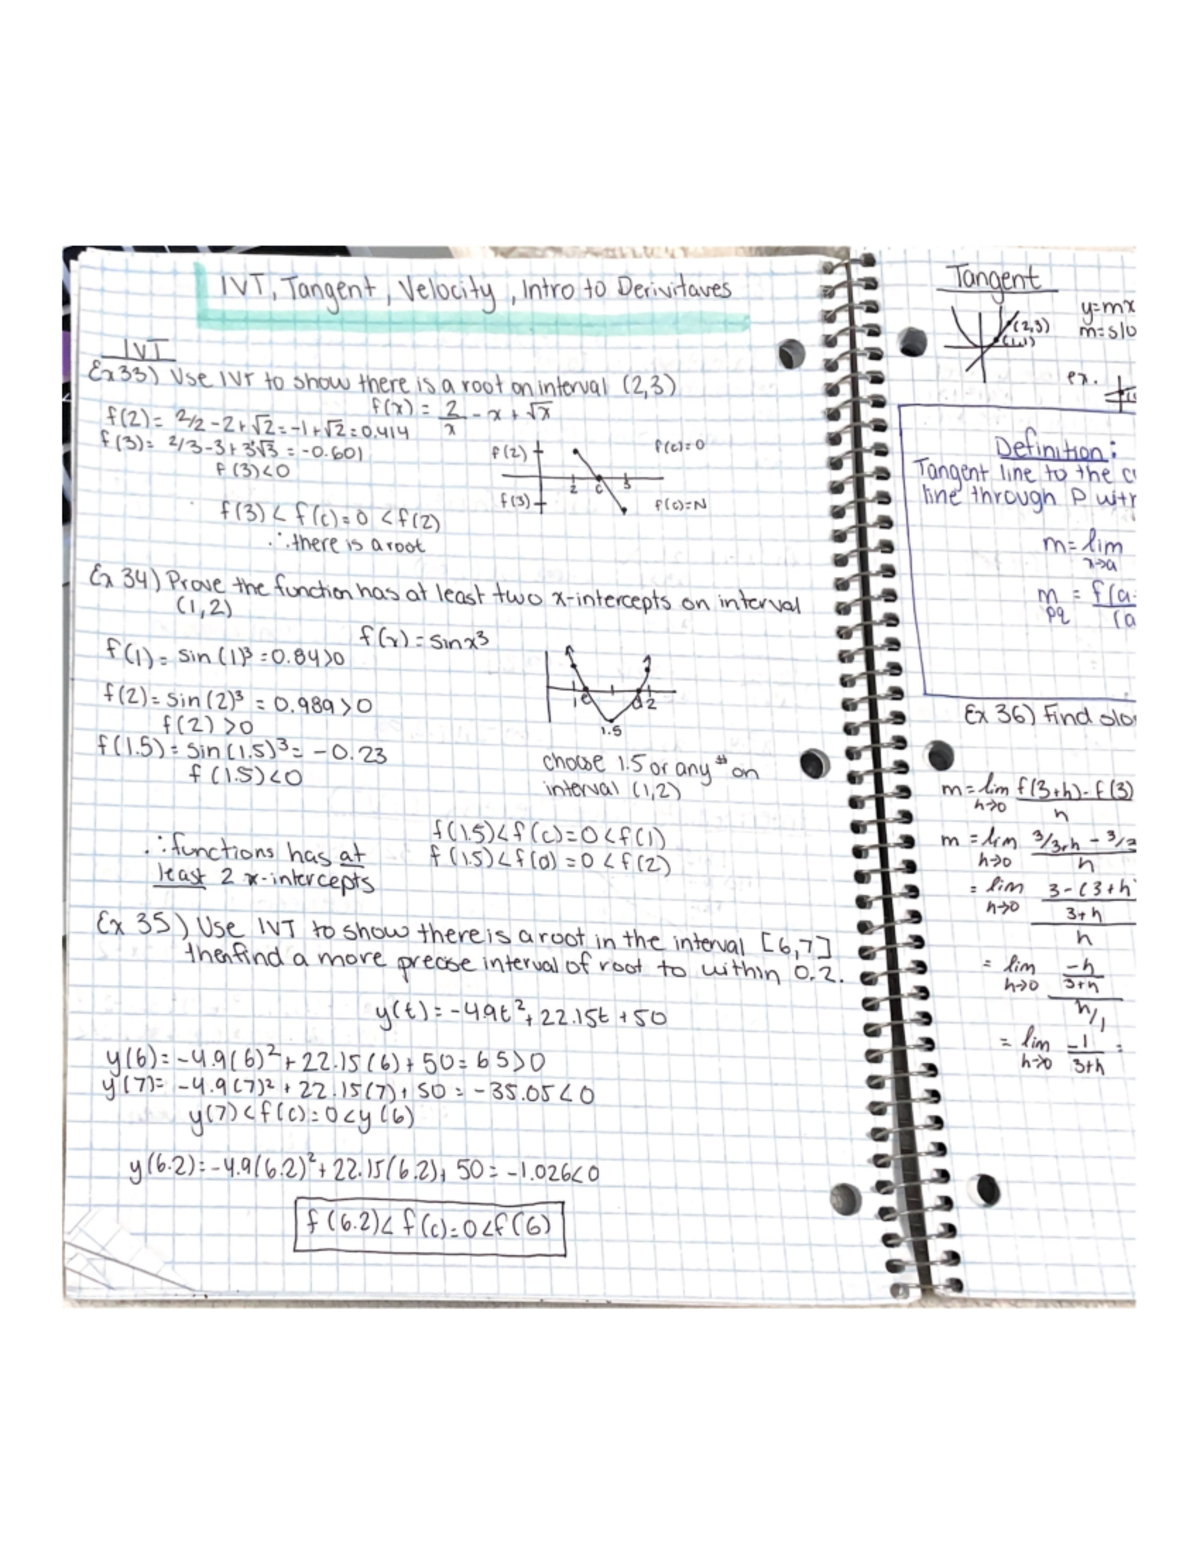 IVT, Tangent, Velocity, Intro to Derivitaves
IVT
Ex33) Use IVT to show there is a root on interval (2,3)
f(x) = 2/x - x + √x
f(2) = 2/2 - 2 + √2 = -1 + √2 = 0.414
f(3) = 2/3 - 3 + 3√3 = -0.601
f(3) < 0
f(2)
f(3)
2 c 3
f(c)=0
f(c)=N
f(3) < f(c) = 0 < f(2)
∴ there is a root
Ex 34) Prove the function has at least two x-intercepts on interval
(1,2)
f(x) = sinx³
f(1) = sin(1)³ = 0.84>0
f(2) = sin(2)³ = 0.989>0
f(2) >0
f(1.5) = sin(1.5)³ = -0.23
f(1.5)<0
1 c d 2
1.5
choose 1.5 or any # on
interval (1,2)
f(1.5)<f(c)=0<f(1)
f(1.5)<f(d)=0<f(2)
∴ functions has at
least 2 x-intercepts
Ex 35) Use IVT to show there is a root in the interval [6,7]
then find a more precise interval of root to within 0.2.
y(t) = -4.9t² + 22.15t + 50
y(6) = -4.9(6)² + 22.15(6) + 50 = 6.5>0
y(7) = -4.9(7)² + 22.15(7) + 50 = -35.05<0
y(7)<f(c)=0<y(6)
y(6.2) = -4.9(6.2)² + 22.15(6.2) + 50 = -1.026<0
f(6.2)< f(c)=0<f(6)
Tangent
(2,3)
(1,1)
y=mx
m=slo
ex.
Definition:
Tangent line to the c
line through P wit
m = lim
x→a
m = f(a
pq (a
Ex 36) Find slo
m = lim f(3+h) - f(3)
h→0 h
m = lim 3/3+h - 3/3
h→0 h
= lim 3-(3+h
h→0 3+h
h
= lim -h
h→0 3+h
h/1
= lim -1 =
h→0 3+h